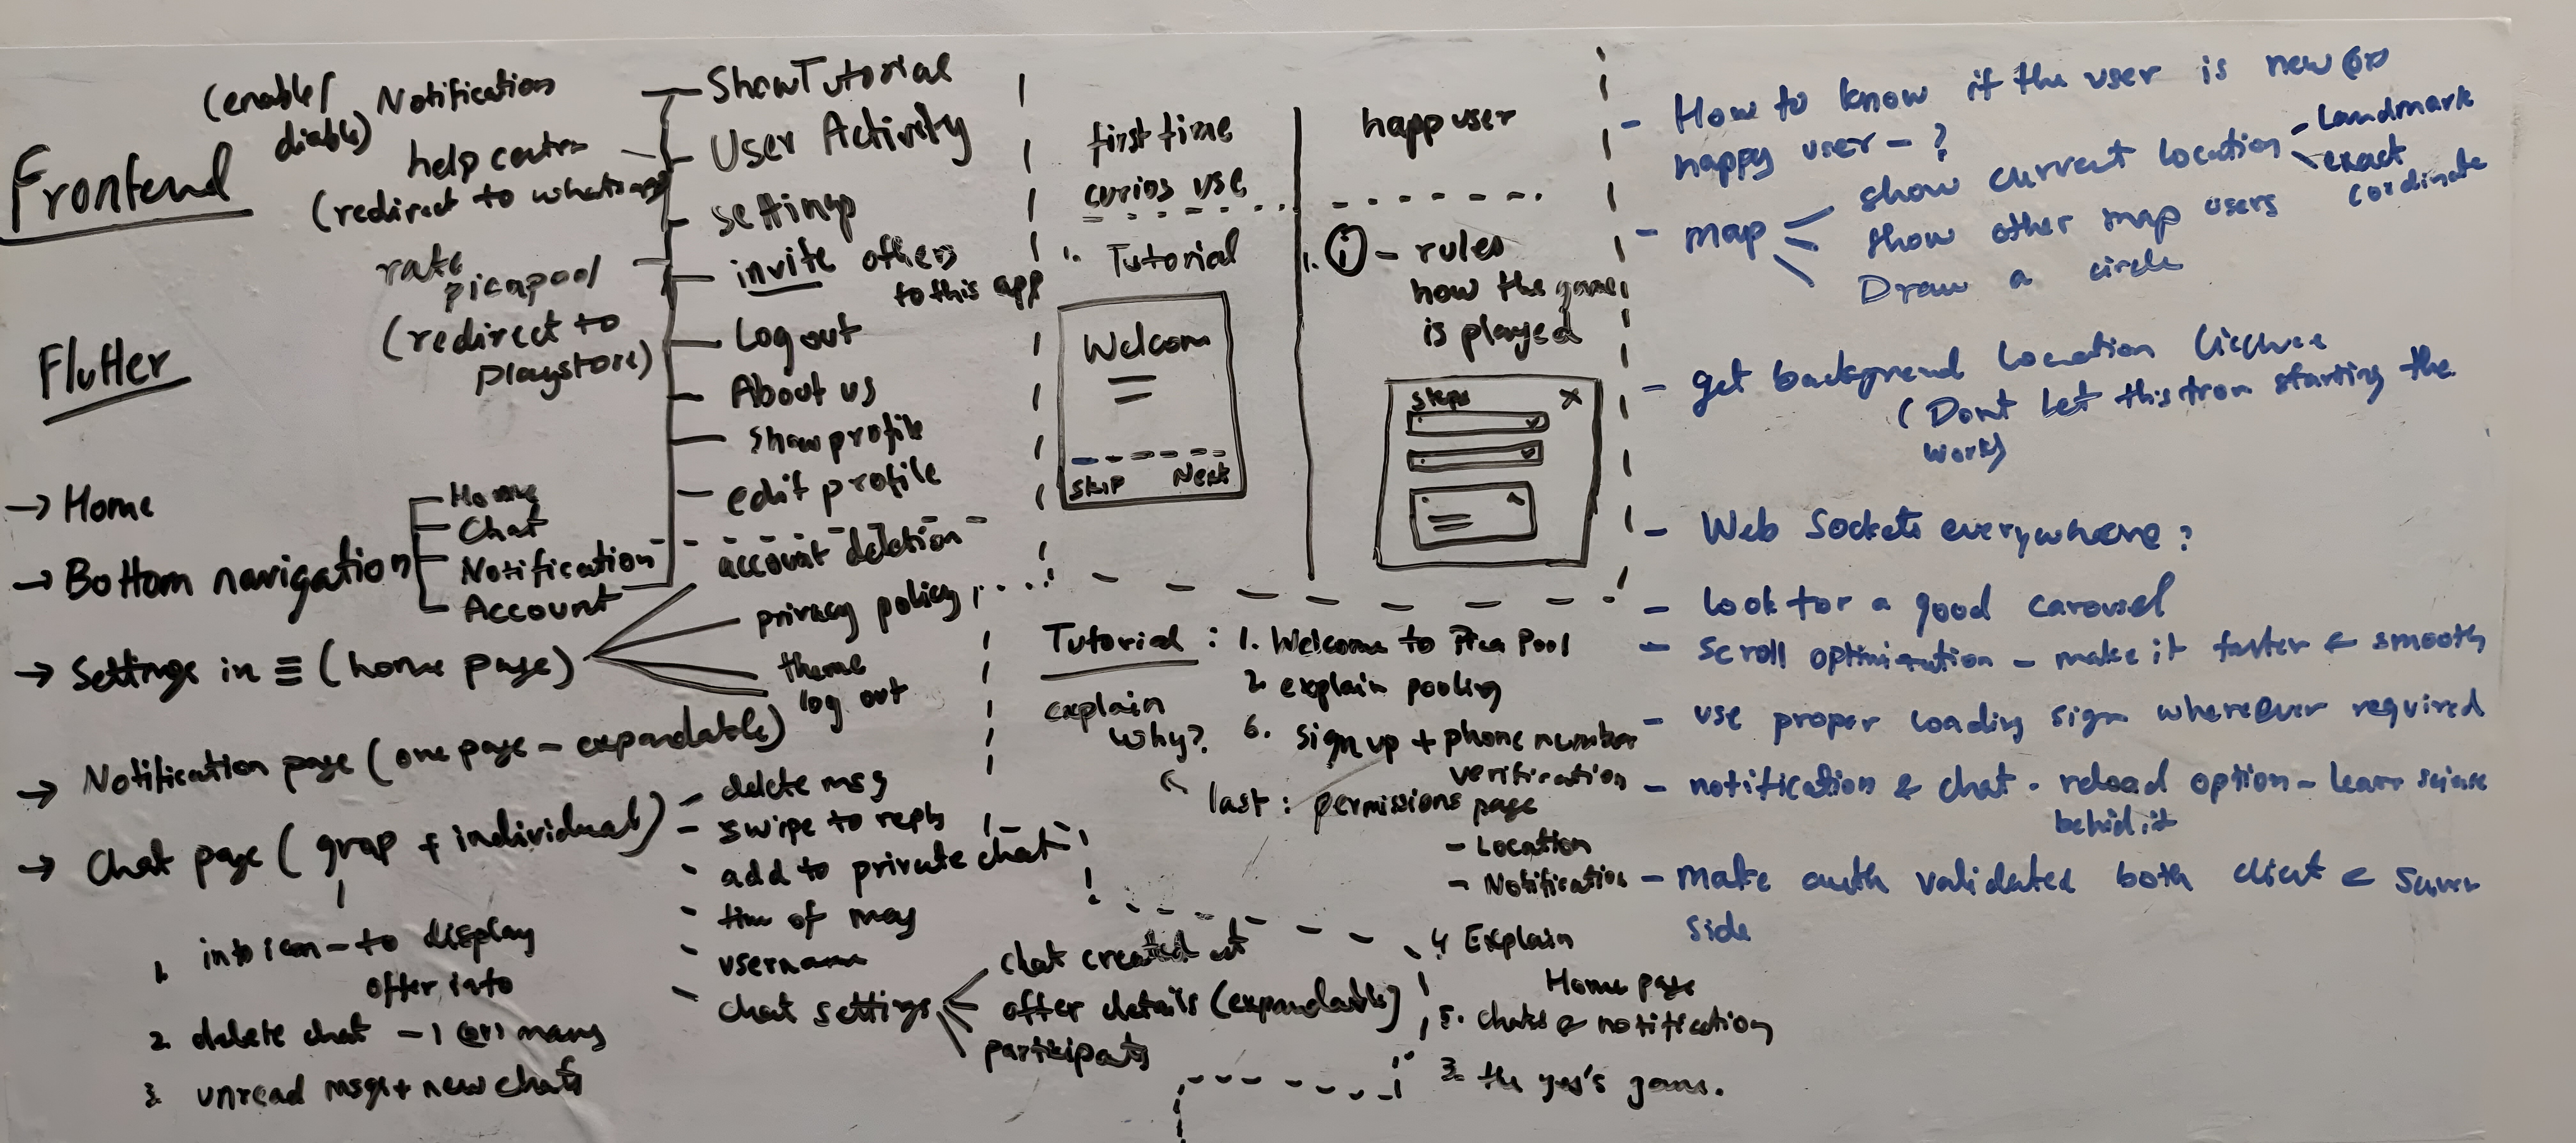 Frontend
Flutter
(enable/
diable)
Notification
help center
(redirect to whatsapp)
rate
picapool
(redirect to
playstore)
Show Tutorial
User Activity
settings
invite others
to this app
Log out
About us
show profile
edit profile
account deletion
→ Home
→ Bottom navigation
Home
Chat
Notification
Account
→ Settings in ≡ (home page)
privacy policy
theme
log out
→ Notification page (one page - expandable)
→ Chat page ( group + individual)
1. info icon - to display
offer info
2. delete chat - 1 (or) many
3. unread msgs + new chats
- delete msg
- swipe to reply
- add to private chat
- time of msg
- username
- chat settings
chat created at
offer details (expandable)
participants
first time
curios use
1. Tutorial
Welcom
skip Next
happ user
1. i - rules
how the game
is played
Steps x
Tutorial : 1. Welcome to Pica Pool
2. explain pooling
explain
why?
6. sign up + phone number
verification
last : permissions page
- Location
- Notification
4 Explain
Home page
5. chats & notification
3. the yes's game.
- How to know if the user is new (or)
happy user - ?
- map
show current location
- Landmark
- exact
cordinate
show other map users
Draw a circle
- get background location
( Dont let this from starting the
work)
- Web Sockets everywhere?
- look for a good carousel
- Scroll optimization - make it faster & smooth
- use proper loading sign wherever required
- notification & chat - reload option - learn science
behid it
- make auth validated both client & server
side